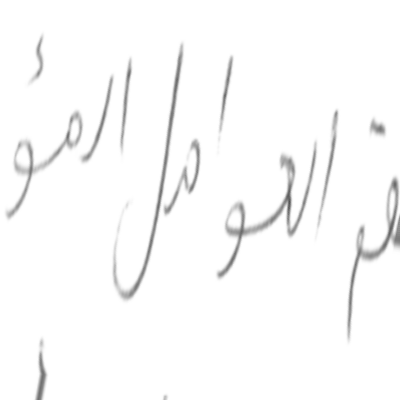 العوامل المؤ